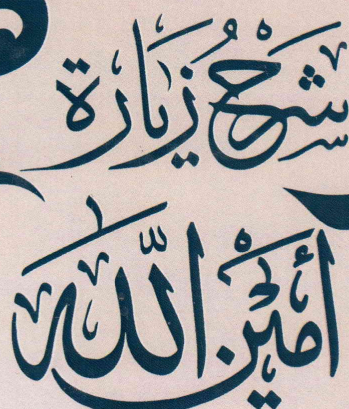 شرح زيارة
أمين الله